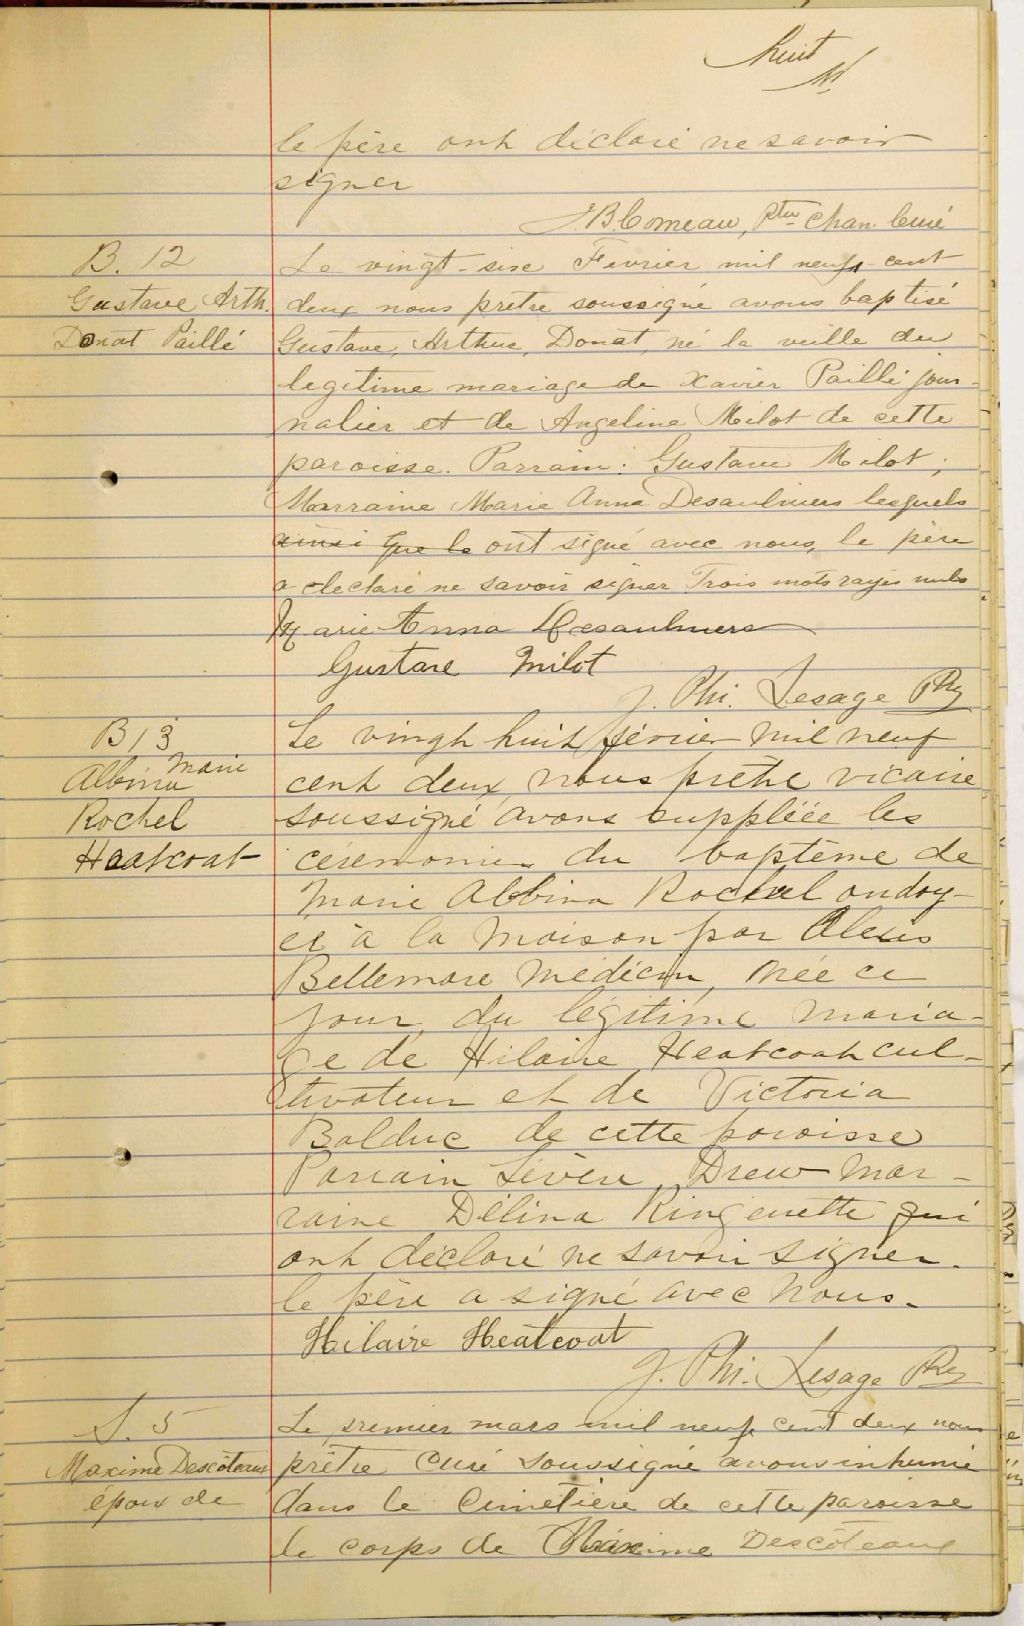 huit
le père ont déclaré ne savoir
signer
J. B. Comeau, Ptre Chan. Curé
B. 12
Gustave Arth.
Donat Paillé
Le vingt-six Fevrier mil neuf cent
deux nous prêtre soussigné avons baptisé
Gustave, Arthur, Donat, né la veille du
legitime mariage de Xavier Paillé jour-
nalier et de Angeline Milot de cette
paroisse. Parrain: Gustave Milot;
Marraine Marie Anna Desaulniers lesquels
ainsi que le ont signé avec nous, le père
a declaré ne savoir signer Trois mots rayés nuls
Marie Anna Desaulniers
Gustave Milot
J. Phi. Lesage Ptre
B 13
Marie
Albina
Rochel
Heatcoat
Le vingt huit février mil neuf
cent deux, nous prêtre vicaire
soussigné avons suppléée les
cérémonies du baptême de
Marie Albina Rochel ondoy-
ée à la maison par Alexis
Bellemare Médécin, née ce
jour, du légitime maria-
ge de Hilaire Heatcoat cul-
tivateur et de Victoria
Balduc de cette paroisse
Parrain Sévère Drew mar-
raine Délina Ringuette qui
ont déclaré ne savoir signer.
le père a signé avec nous.
Hilaire Heatcoat
J. Phi. Lesage Ptre
S. 5
Maxime Descôteaux
époux de
Le premier mars mil neuf cent deux nous
prêtre Curé soussigné avons inhumé
dans le Cimetière de cette paroisse
le corps de Maxime Descôteaux